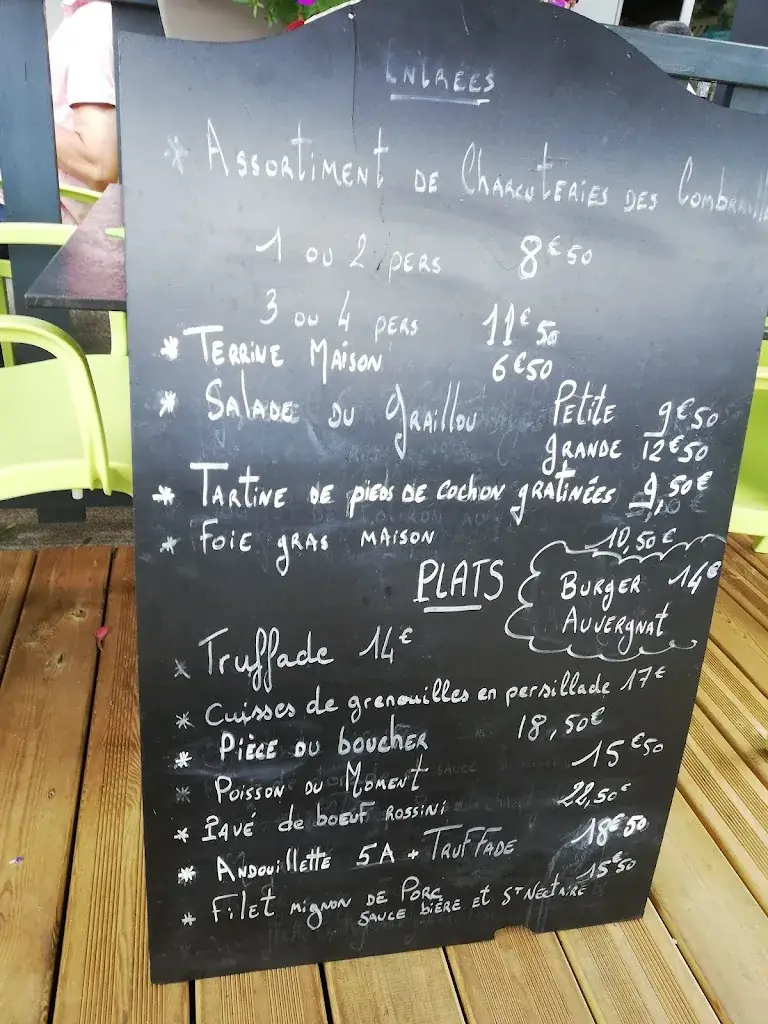 ENTRÉES
* ASSORTIMENT DE CHARCUTERIES DES
1 OU 2 PERS 8€50
3 OU 4 PERS 11€50
* TERRINE MAISON 6€50
* SALADE DU GRAILLOU PETITE 9€50
GRANDE 12€50
* TARTINE DE PIEDS DE COCHON GRATINÉES 9,50€
* FOIE GRAS MAISON 10,50€
PLATS
BURGER 14€
AUVERGNAT
* Truffade 14€
* Cuisses de grenouilles en persillade 17€
* PIÈCE DU BOUCHER 18,50€
* POISSON DU MOMENT 15€50
* PAVÉ de boeuf ROSSINI 22,50€
* ANDOUILLETTE 5A + TRUFFADE 18€50
* Filet mignon DE PORC 15€50
SAUCE BIÈRE et ST NECTAIRE